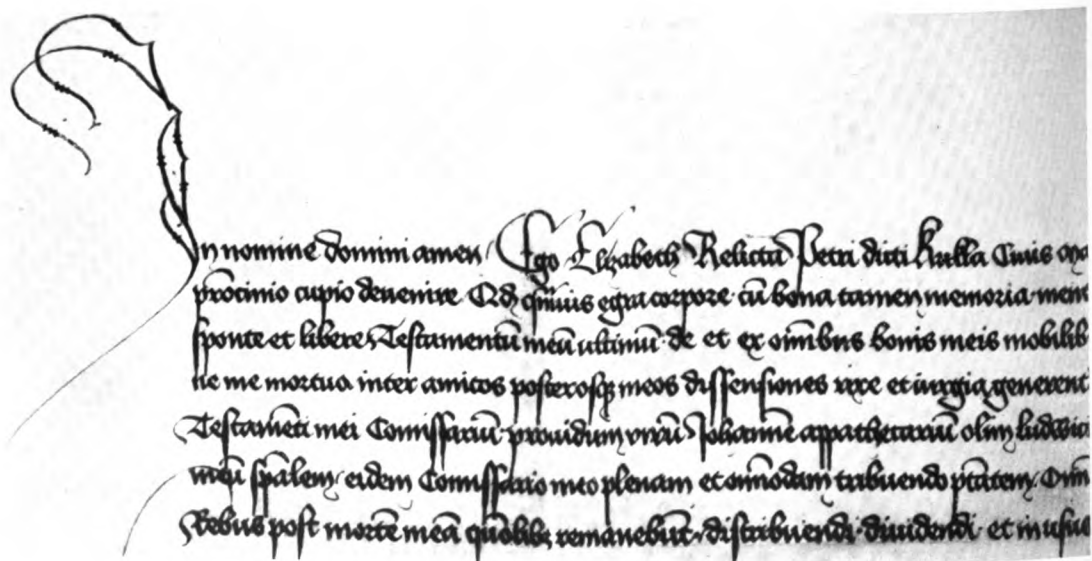 In nomine domini amen Ego Elizabeth Relicta Petri dicti Civis
procinio cupio devenire Qd qmuis egra corpore cū bona tamen memoria mem
sponte et libere Testamentū meū ultimū de et ex omībus bonis meis mobilib
ne me mortua inter amicos posterosq meos dissensiones rixe et iurgia generent
Testamēti mei Comissariū providum virū Johannē appathecariū olim ludwici
meū spālem eidem Comissario meo plenam et omodam tribuendo ptātem Om
Rebus post mortē meā quolibz remanebūt distribuendi dividendi et in usu